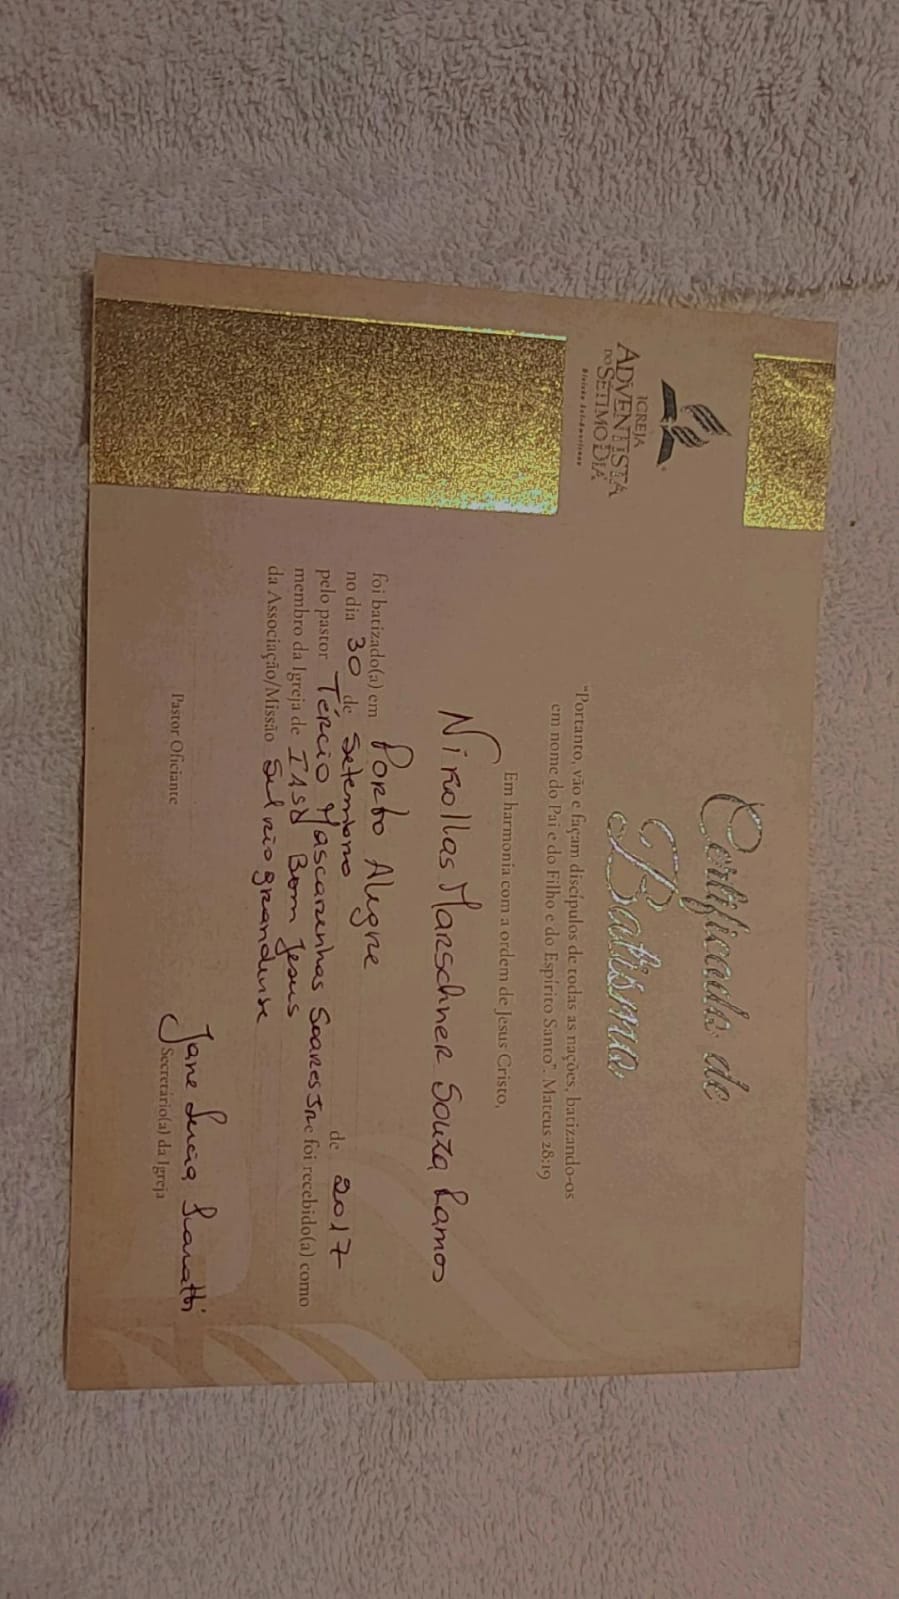 IGREJA
ADVENTISTA
DO SÉTIMO DIA
Divisão Sul-Americana
Certificado de
Batismo
"Portanto, vão e façam discípulos de todas as nações, batizando-os
em nome do Pai e do Filho e do Espírito Santo". Mateus 28:19
Em harmonia com a ordem de Jesus Cristo,
Nikollas Marschner Souza Ramos
foi batizado(a) em Porto Alegre
no dia 30 de Setembro de 2017
pelo pastor Tércio Mascarenhas Soares Jr e foi recebido(a) como
membro da Igreja de IASD Bom Jesus
da Associação/Missão Sul riograndense
Pastor Oficiante
Jane Lucia
Secretário(a) da Igreja